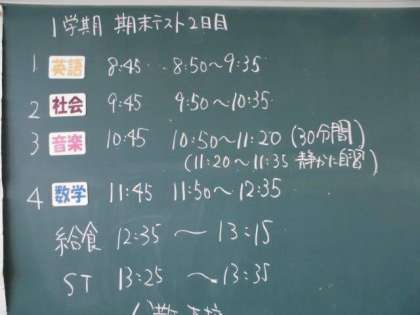 1学期 期末テスト2日目
1 英語 8:45 8:50～9:35
2 社会 9:45 9:50～10:35
3 音楽 10:45 10:50～11:20 (30分間)
(11:20～11:35 静かに自習)
4 数学 11:45 11:50～12:35
給食 12:35 ～ 13:15
ST 13:25 ～13:35